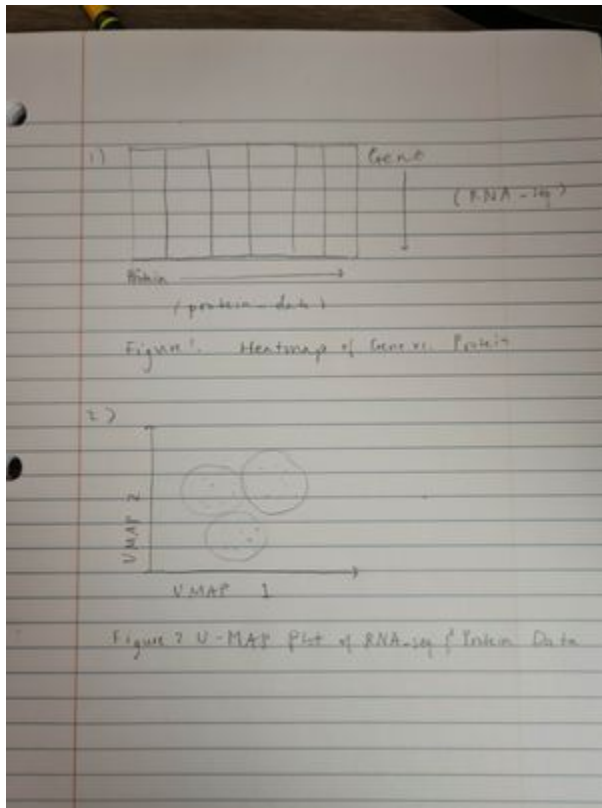 1)
Gene
(RNA-seq)
Protein
(protein-data)
Figure 1. Heatmap of Gene vs. Protein
2)
UMAP 2
UMAP 1
Figure 2 U-MAP Plot of RNA-seq & Protein Data